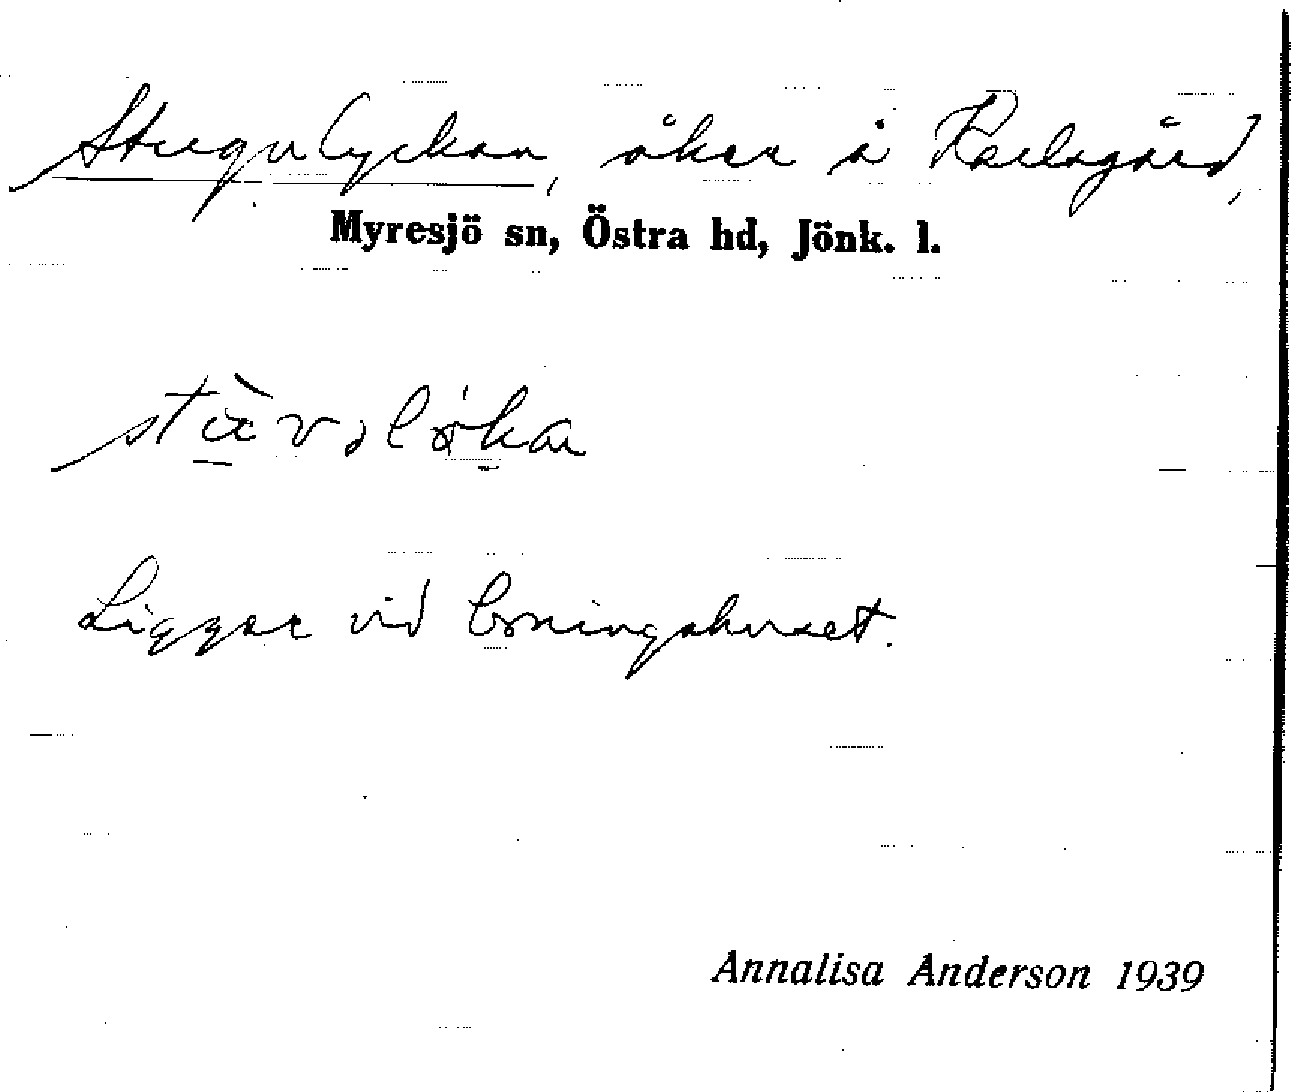 Stugulyckan, åker å Karlsgård,
Myresjö sn, Östra hd, Jönk. l.
Ligger vid boningshuset.
Annalisa Anderson 1939